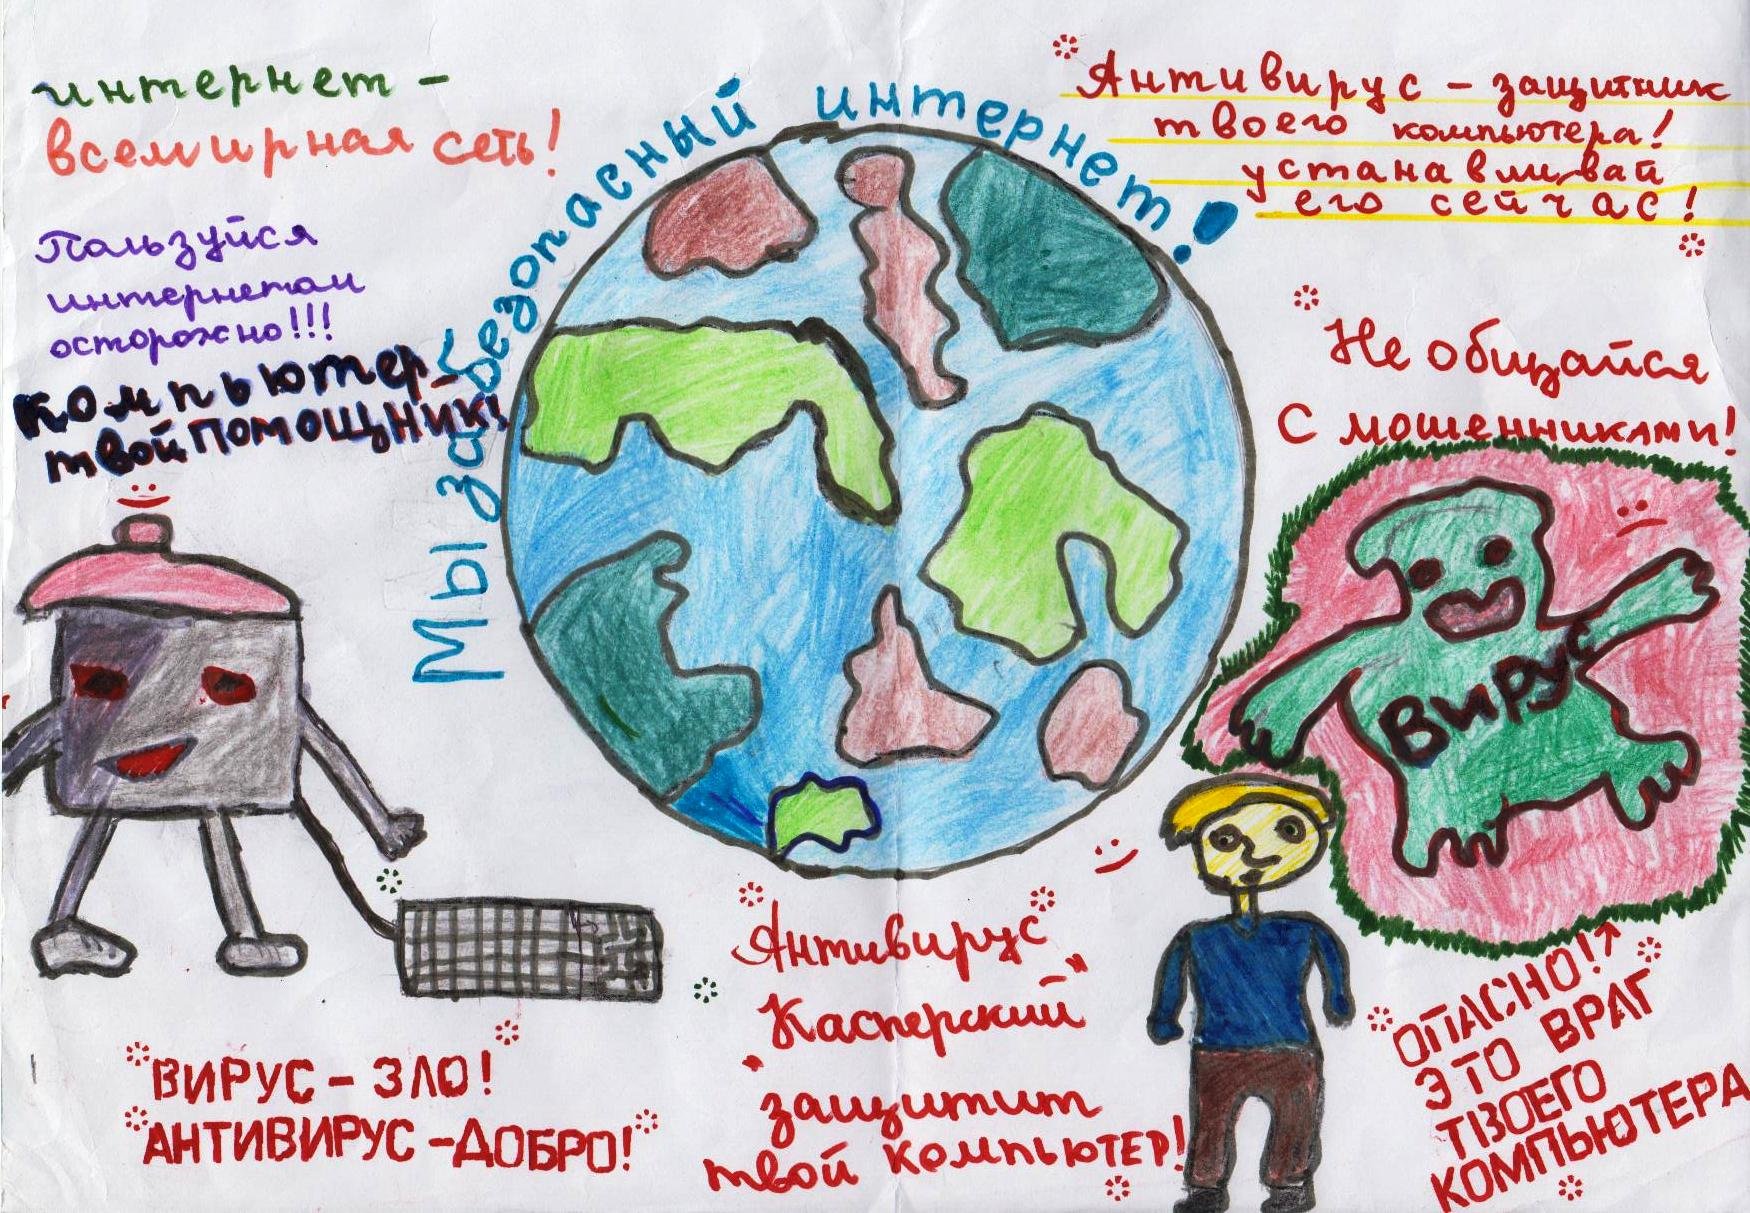 интернет -
всемирная сеть!
Пользуйся
интернетом
осторожно!!!
Компьютер-
твой помощник!
Мы за безопасный интернет!
Антивирус - защитник
твоего компьютера!
устанавливай
его сейчас!
Не общайся
с мошенниками!
Вирус
ОПАСНО!
ЭТО ВРАГ
ТВОЕГО
КОМПЬЮТЕРА
Антивирус
"Касперский"
защитит
твой компьютер!
ВИРУС - ЗЛО!
АНТИВИРУС - ДОБРО!